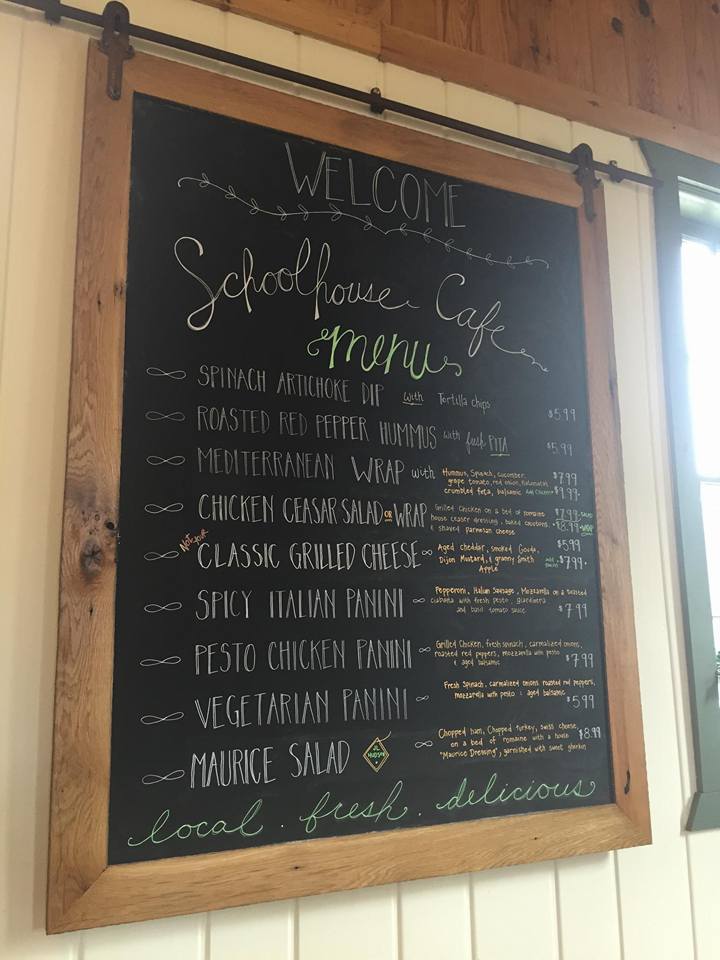 WELCOME
Schoolhouse Cafe
menu
SPINACH ARTICHOKE DIP with Tortilla chips $5.99
ROASTED RED PEPPER HUMMUS with fresh PITA $5.99
MEDITERRANEAN WRAP with Hummus, Spinach, cucumber $7.99
grape tomato, red onion, kalamata,
crumbled feta, balsamic Add Chicken $9.99
CHICKEN CEASAR SALAD OR WRAP Grilled Chicken on a bed of romaine $7.99 SALAD
house ceaser dressing, baked croutons $8.99 WRAP
& shaved parmesan cheese
NOT YOUR
CLASSIC GRILLED CHEESE Aged cheddar, smoked Gouda, $5.99
Dijon Mustard, & granny Smith $7.99
Apple
SPICY ITALIAN PANINI Pepperoni, Italian Sausage, Mozzarella on a toasted
ciabatta with fresh pesto, giardinera
and basil tomato sauce $7.99
PESTO CHICKEN PANINI Grilled Chicken, fresh spinach, carmalized onions,
roasted red peppers, mozzarella with pesto
& aged balsamic $7.99
VEGETARIAN PANINI Fresh Spinach, carmalized onions, roasted red peppers,
mozzarella with pesto & aged balsamic
$5.99
MAURICE SALAD JL HUDSON Chopped ham, Chopped turkey, swiss cheese, $8.99
on a bed of romaine with a house
"Maurice Dressing", garnished with sweet gherkin
local . fresh . delicious